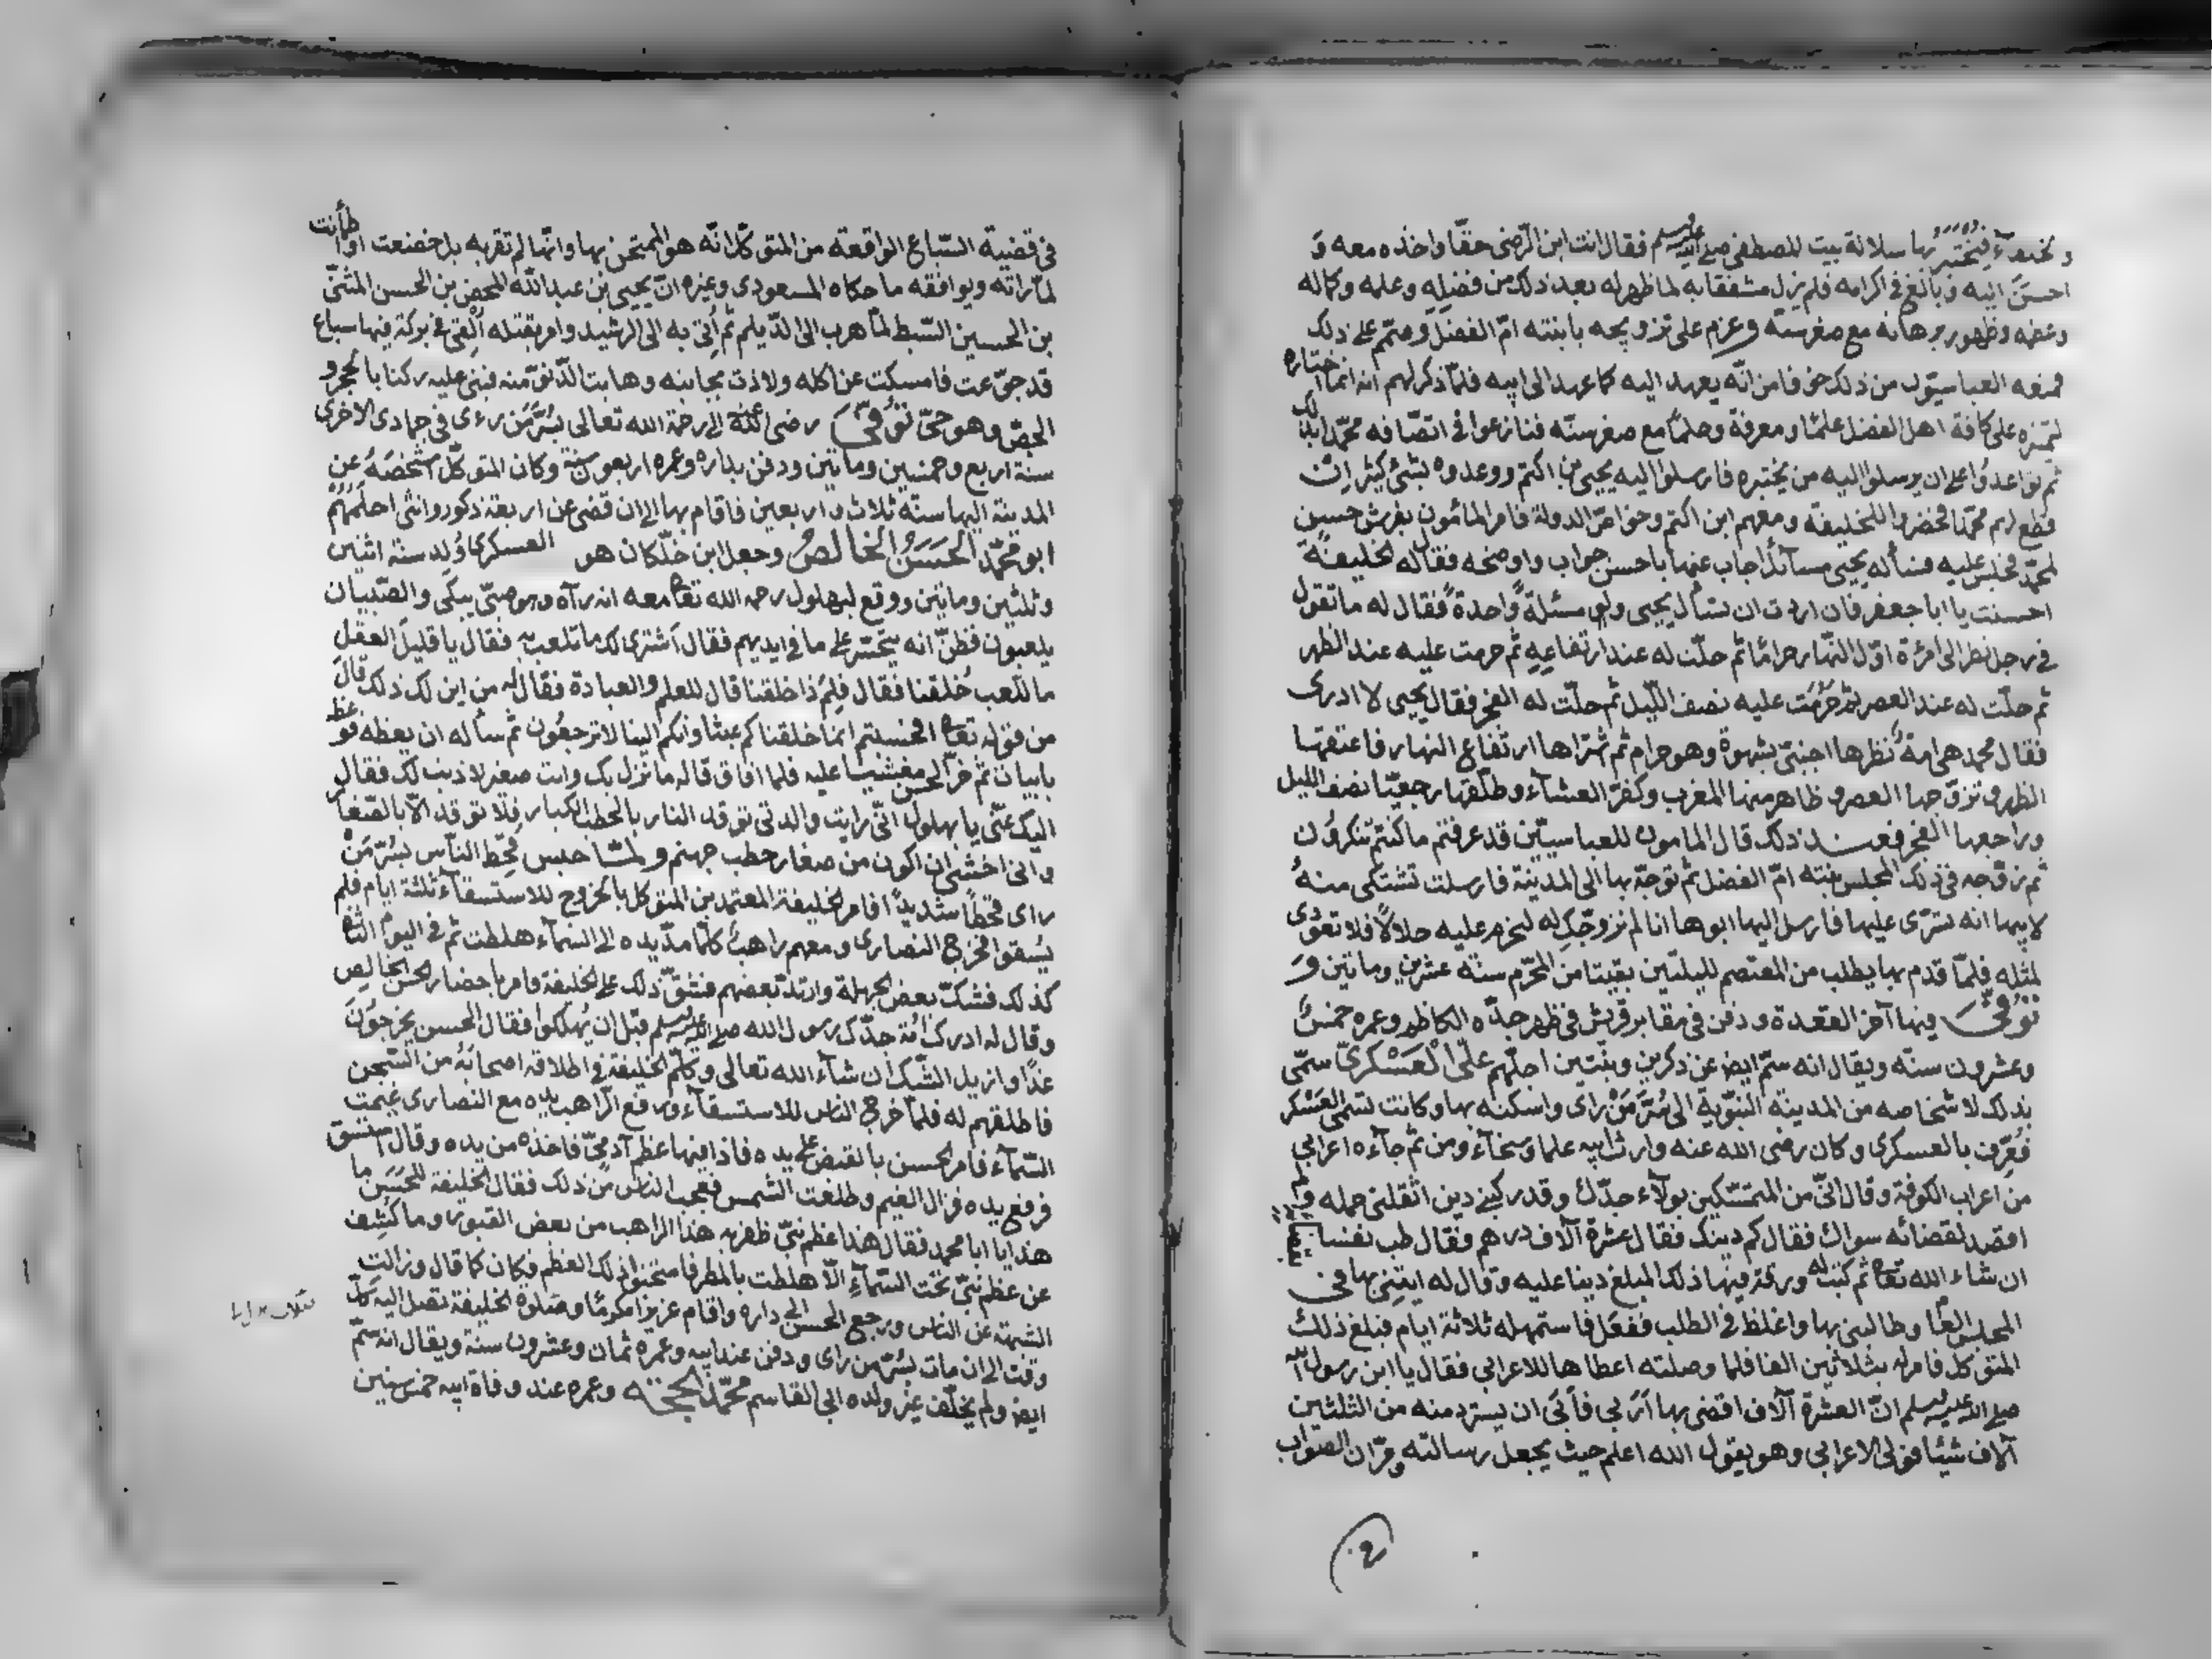 فيختبر بها سلالة بيت المصطفى صلى الله عليه وسلم فقال انت ابن الرضى حقّا واخذه معه و
احسن اليه وبالغ فى اكرامه فلم يزل مشفقا به لما ظهر له بعد ذلك من فضله وعلمه وكماله
وعظمه وظهور برهانه مع صغر سنّه وعزم على تزويجه بابنته امّ الفضل وصمّم على ذلك
فمنعه العباسيّون من ذلك خوفا من انّه يعهد اليه كما عهد الى ابيه فلمّا ذكر لهم انه انما اختاره
لتميّزه على كافة اهل الفضل علمًا ومعرفة وحلمًا مع صغر سنّه فنازعوا فى اتصّافه محمّد بذلك
ثم تواعدوا على ان يرسلوا اليه من يختبره فارسلوا اليه يحيى بن اكتم ووعدوه بشئ كثير ان
قطع لهم محمّدا فحضروا للخليفة ومعهم ابن اكتم وخواصّ الدولة فامر المأمون بفرش حسن
لمحمّد فجلس عليه فسأله يحيى مسائل اجاب عنها باحسن جواب واوضحه فقال له الخليفة
احسنت يا ابا جعفر فان اردت ان تسأل يحيى ولو مسئلة واحدة فقال له ما تقول
فى رجل نظر الى امرٔة اوّل النّهار حرامًا ثم حلّت له عند ارتفاعه ثم حرمت عليه عند الظهر
ثم حلّت له عند العصر ثم حرمت عليه نصف اللّيل ثم حلّت له الفجر فقال يحيى لا ادرى
فقال محمد هى امة نظرها اجنبىّ بشهوة وهو حرام ثم شتراها ارتفاع النهار فاعتقها
الظهر وتزوّجها العصر وظاهر منها المغرب وكفّر العشآء وطلّقها رجعيّا نصف الليل
وراجعها الفجر فعند ذلك قال المامون للعباسيّين قد عرفتم ما كنتم تنكرون
ثم زوّجه فى ذلك المجلس بنته امّ الفضل ثم توجّه بها الى المدينة فارسلت تشتكى منه
لابيها انه تسرّى عليها فارسل اليها ابوها انا لم نزوجك له لنحرم عليه حلالا فلا تعودى
لمثله فلمّا قدم بها بطلب من المعتصم لليلتين بقيتا من المحرّم سنة عشرين وماتين و
توفّى فيها آخر القعدة ودفن فى مقابر قريش فى ظهر جدّه الكاظم وعمره خمس
وعشرون سنه ويقال انه سمّ ايض عن ذكرين وبنتين اجلّهم علىّ العسكرىّ سمّى
بذلك لاشخاصه من المدينة النبوّية الى سُرّ مَنْ رأى واسكنه بها وكانت تسمّى العسكر
فعُرف بالعسكرى وكان رضى الله عنه وارث ابيه علما وسخآء ومن ثم جآءه اعرابى
من اعراب الكوفة وقال انّى من المتمسّكين بولآء جدّك وقد ركبنى دين اثقلنى حمله ولم
اقصد لقضائه سواك فقال كم دينك فقال عشرة آلاف درهم فقال طب نفسا
ان شاء الله تعا ثم كتب له ورقة فيها ذلك المبلغ دينا عليه وقال له ايتنى بها فى
المجلس العام وطالبنى بها واغلظ فى الطلب ففعل فاستمهله ثلاثة ايام فبلغ ذلك
المتوكل فامر له بثلاثين الفا فلما وصلته اعطاها للاعرابى فقال يا ابن رسول الله
صلى الله عليه وسلم انّ العشرة آلاف اقضى بها اربى فأبى ان يسترد منه من الثلثين
آلاف شيئا فولى الاعرابى وهو يقول الله اعلم حيث يجعل رسالته ومرّ ان الصّواب
فى قضية السّباع الواقعة من المتوكّل انّه هو الممتحن بها وانّها لم تقربه بل خضعت واطمأنت
لما رأته ويوافقه ما حكاه المسعودى وغيره انّ يحيى بن عبد الله المحض بن الحسن المثنّى
بن الحسين السّبط لمّا هرب الى الدّيلم ثم أتى به الى الرشيد وامر بقتله ألقى فى بركة فيها سباع
قد جوّعت فامسكت عن اكله ولاذت بجانبه وهابت الدّنوّ منه فبنى عليه ركنا بالحجر و
الجصّ وهو حىّ توفّى رضى الله عنه الى رحمة الله تعالى بسُرَّ مَن رءى فى جمادى الاخرى
سنة اربع وخمسين وماتين ودفن بداره وعمره اربعون سنة وكان المتوكّل اشخصه عن
المدينة اليها سنة ثلاث واربعين فاقام بها الى ان قضى عن اربعة ذكور وانثى اجلّهم
ابو محمّد الحسن الخالص وجعل ابن خلّكان هو العسكرى وُلد سنة اثنين
وثلثين وماتين ووقع لبهلول رحمه الله تعا معه انه رآه وهو صبىّ يبكى والصّبيان
يلعبون فظنّ انه يتحسّر على ما فى ايديهم فقال اشترى لك ما تلعب به فقال يا قليل العقل
ما للّعب خلقنا فقال فلم ذا خلقنا قال للعلم والعبادة فقال له من اين لك ذلك قال
من قوله تعا افحسبتم انما خلقناكم عبثا وانكم الينا لا ترجعون ثم سأله ان يعظه فوعظه
بابيات ثم خرّ الحسن مغشيّا عليه فلما افاق قال له ما نزل بك وانت صغير لا ذنب لك فقال
اليك عنّى يا بهلول انّى رايت والدتى توقد النار بالحطب الكبار فلا توقد الّا بالصّغار
وانى اخشى ان اكون من صغار حطب جهنم ولمّا حبس قحط النآس بسُرّ مَنْ
راى قحطًا شديدًا فامر الخليفة المعتمد بن المتوكل بالخروج للاستسقآء ثلثة ايام فلم
يُسقوا فخرج النصارى ومعهم راهب كلّما مدّ يده الى السّمآء هطلت ثم فى اليوم الثانى
كذلك فشكّ بعض الجهلة وارتدّ بعضهم فشقّ ذلك على الخليفة فامر باحضار الحسن الخالص
وقال له ادرك امّة جدّك رسول الله صلى الله عليه وسلم قبل ان يُهلكوا فقال الحسن يخرجون
غدًا وازيل الشّكّ ان شآء الله تعالى وكلّم الخليفة فى اطلاق اصحابه من السّجن
فاطلقهم له فلمّا خرج الناس للاستسقآء ورفع الرّاهب يده مع النصارى غيمت
السّمآء فامر الحسن بالقبض على يده فاذا فيها عظم آدمىّ فاخذه من يده وقال استسق
فرفع يده فزال الغيم وطلعت الشّمس فعجب الناس من ذلك فقال الخليفة للحسن ما
هذا يا ابا محمد فقال هذا عظم نبىّ ظفر به هذا الراهب من بعض القبور وما كُشف
عن عظم نبىّ تحت السّمآء الّا هطلت بالمطر فامتحنوا ذلك العظم فكان كما قال وزالت
الشبهة عن الناس ورجع الحسن الى داره واقام عزيزا مكرما وصلوة الخليفة تصل اليه كلّ
وقت الى ان مات بسُرّ من راى ودفن عند ابيه وعمره ثمان وعشرون سنة ويقال انه سمّ
ايض ولم يخلّف غير ولده ابى القاسم محمّد الحجّة وعمره عند وفاة ابيه خمس سنين